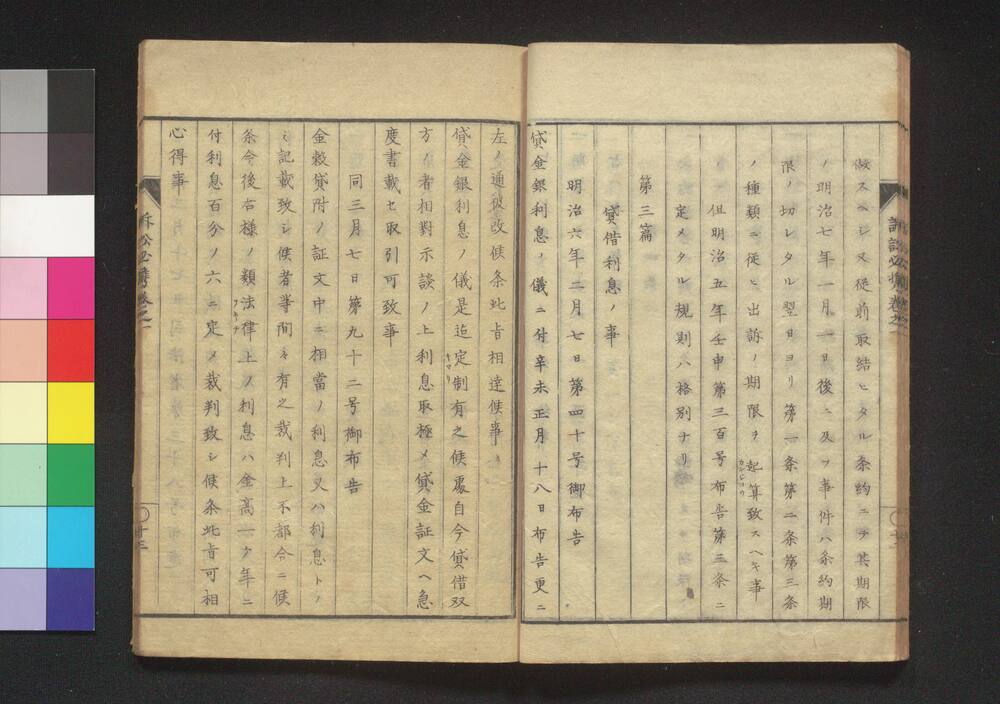 做スヘシ又従前取結ヒタル条約ニテ其期限
ノ明治七年一月一日後ニ及フ事件ハ条約期
限ノ切レタル翌日ヨリ第一条第二条第三条
ノ種類ニ従ヒ出訴ノ期限ヲ起算致スヘキ事
但明治五年壬申第三百号布告第三条ニ
定メタル規則ハ格別ナリ
第三篇
貸借利息ノ事
明治六年二月七日第四十号御布告
貸金銀利息ノ儀ニ付辛未正月十八日布告更ニ
左ノ通被改候条此旨相達候事
貸金銀利息ノ儀是迄定制有之候處自今貸借双
キマリ
方ノ者相對示談ノ上利息取極メ貸金証文ヘ急
度書載セ取引可致事
同三月七日第九十二号御布告
金穀貸附ノ証文中ニ相當ノ利息又ハ利息トノ
ミ記載致シ候者等間々有之裁判上不都合ニ候
条今後右様ノ類法律上ノ利息ハ金高一ケ年ニ
付利息百分ノ六ニ定メ裁判致シ候条此旨可相
心得事
訴訟必携巻之一
〇十三